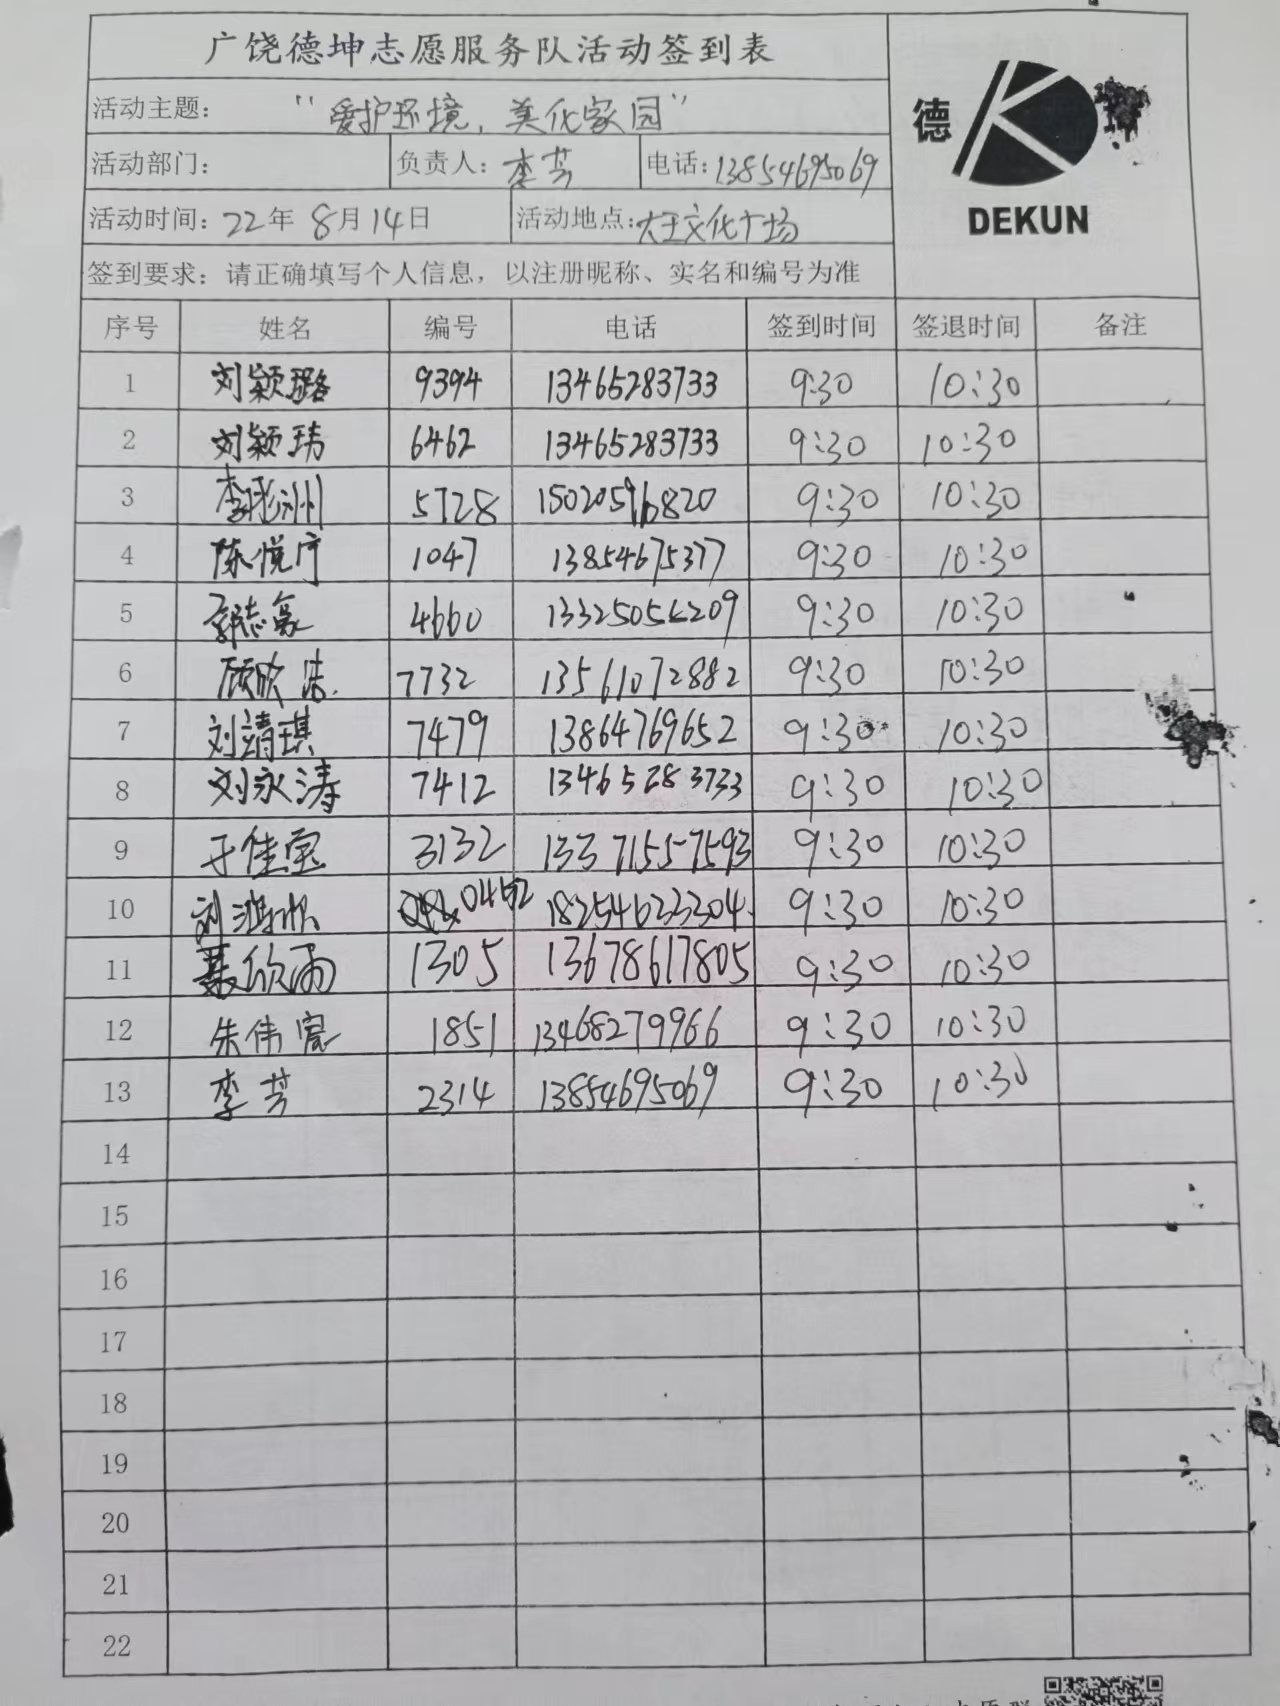 广饶德坤志愿服务队活动签到表
德 DEKUN
活动主题： “爱护环境，美化家园”
活动部门： 负责人：李芳 电话：13854695069
活动时间：22年8月14日 活动地点：大王文化广场
签到要求：请正确填写个人信息，以注册昵称、实名和编号为准
序号 姓名 编号 电话 签到时间 签退时间 备注
1 刘颖璐 9394 13465283733 9:30 10:30
2 刘颖玮 6462 13465283733 9:30 10:30
3 李彤洲 5728 15020596820 9:30 10:30
4 陈悦 1047 13854675377 9:30 10:30
5 郭志豪 4660 9:30 10:30
6 顾欣洁 7732 13561072882 9:30 10:30
7 刘靖琪 7479 13864769652 9:30 10:30
8 刘永涛 7412 13465283733 9:30 10:30
9 于佳宝 3132 13371557593 9:30 10:30
10 刘 0452 18254623304 9:30 10:30
11 聂欣雨 1305 13678617805 9:30 10:30
12 朱伟 1851 13468279966 9:30 10:30
13 李芳 2314 13854695069 9:30 10:30
14
15
16
17
18
19
20
21
22